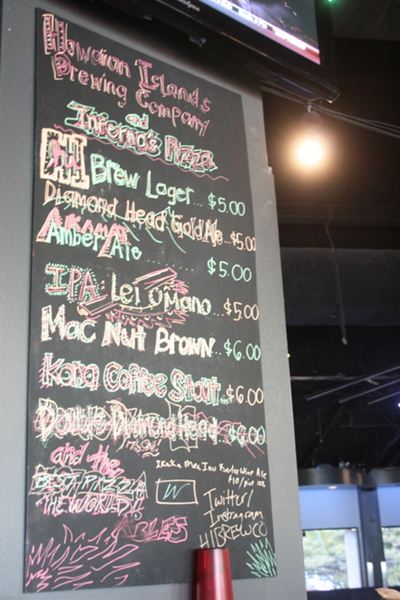 Hawaiian Islands
Brewing Company
and
Inferno's Pizza
HI Brew Lager... $5.00
Diamond Head Gold Ale... $5.00
AKAMAI
Amber Ale........ $5.00
IPA: Lei O Mano $5.00
Mac Nut Brown... $6.00
Kona Coffee Stout... $6.00
Double Diamond Head $6.00
and the
BEST PIZZA
THE WORLD!!
W
Twitter/
Instagram
HIBREWCO